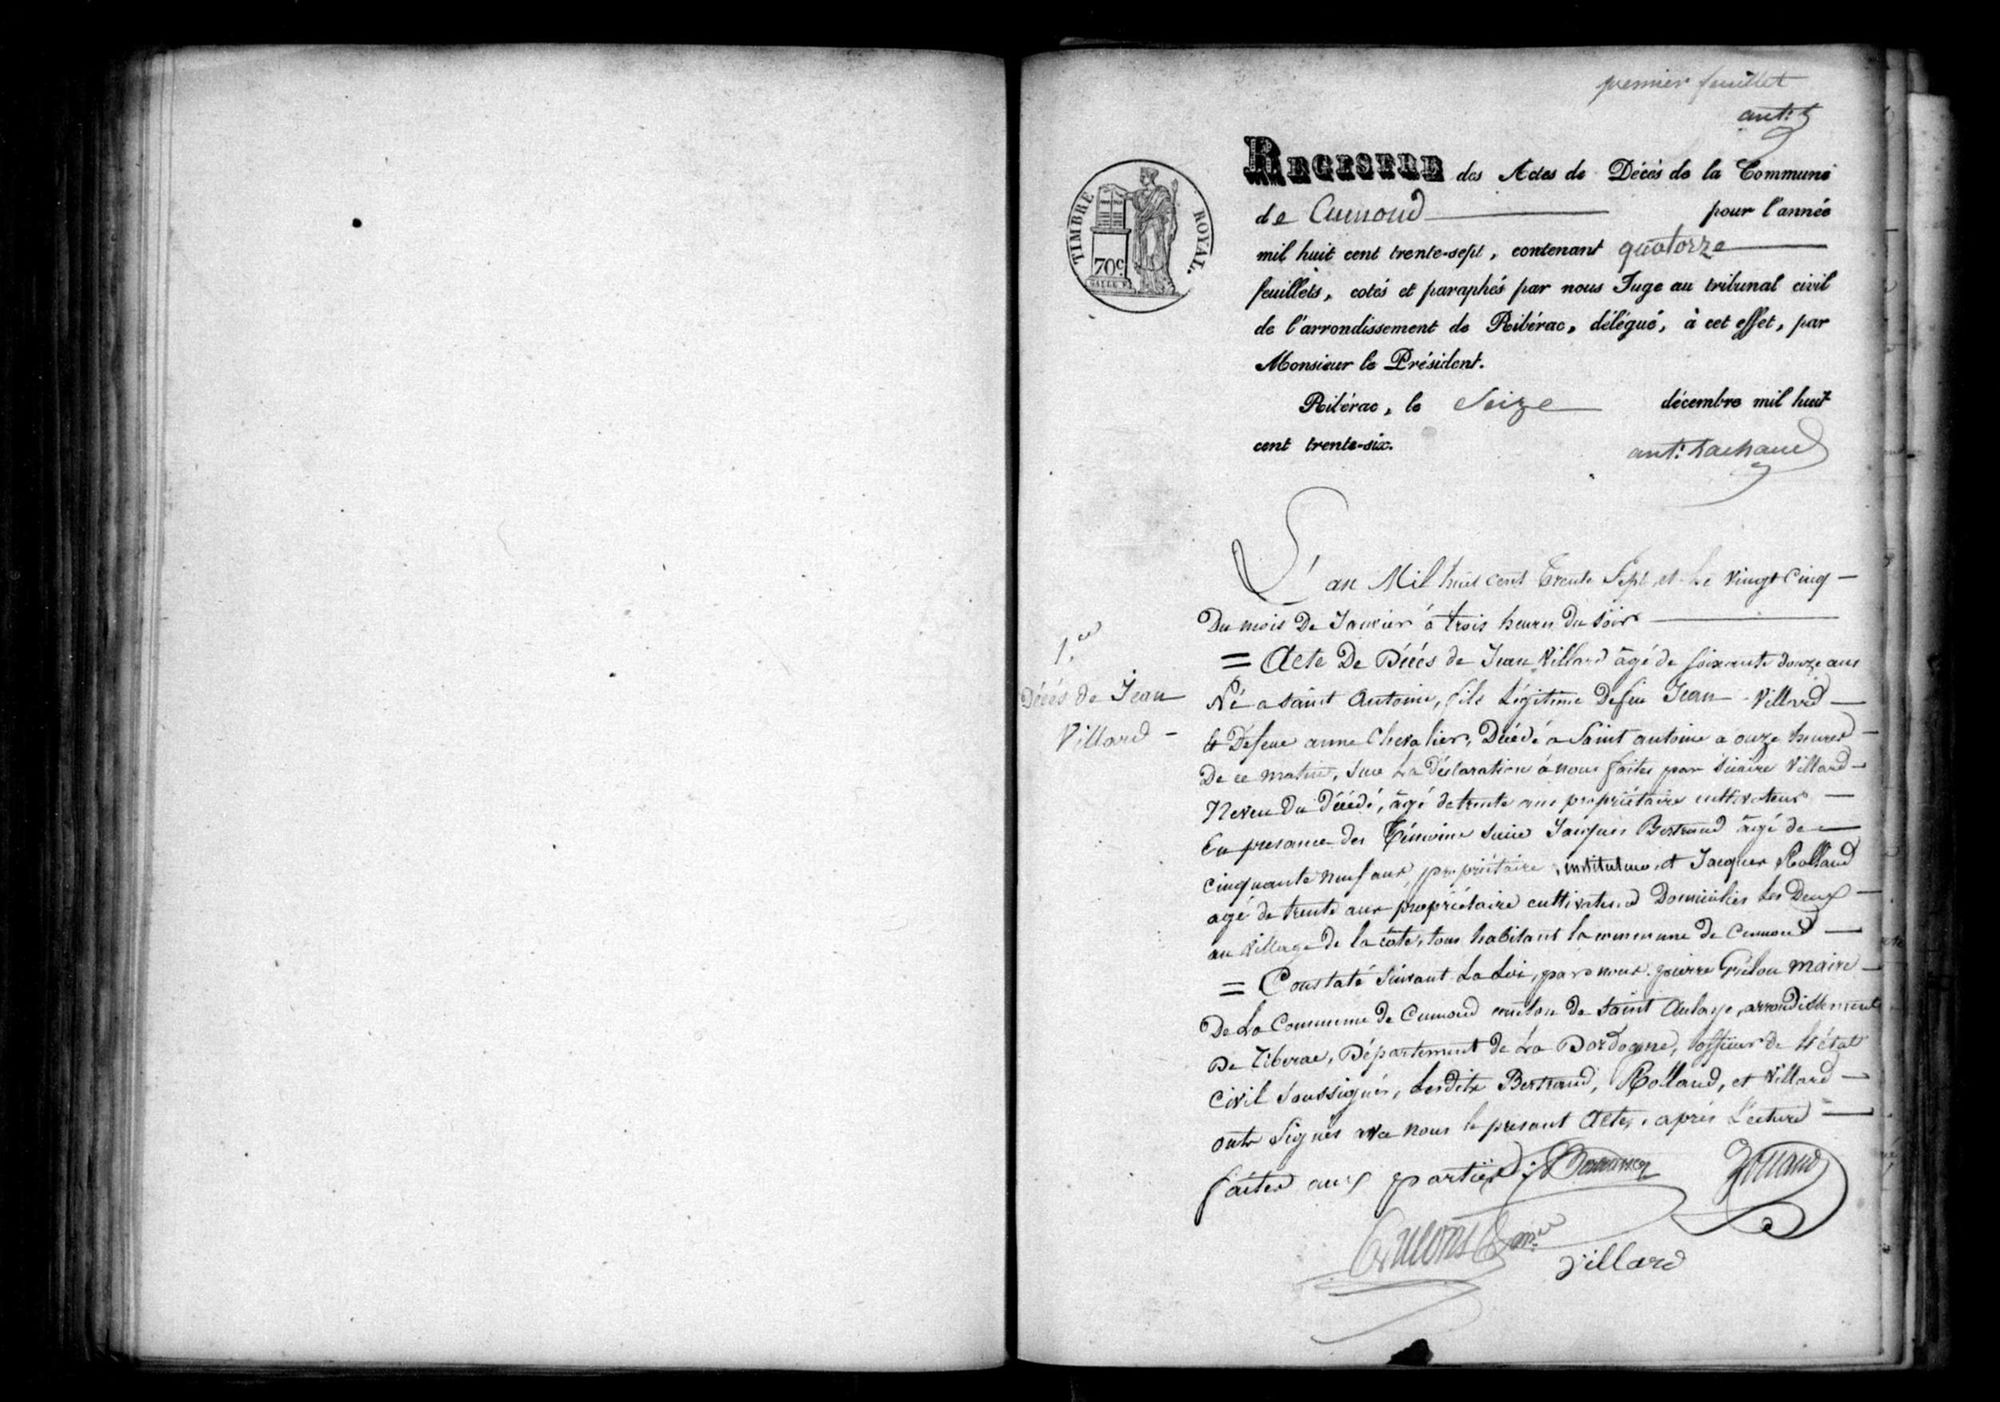 premier feuillet
ant:
REGISTRE des Actes de Décès de la Commune
de Cumond pour l'année
mil huit cent trente-sept, contenant quatorze
feuillets, cotés et paraphés par nous Juge au tribunal civil
de l'arrondissement de Ribérac, délégué, à cet effet, par
Monsieur le Président.
Ribérac, le Seize décembre mil huit
cent trente-six.
ant: Lachaud
TIMBRE ROYAL.
70c.
L'an Mil huit cent Trente Sept, et Le Vingt Cinq
Du mois De Janvier à trois heures Du Soir
1.er
Décès de Jean
Villard
= Acte De Décès de Jean Villard âgé de soixante douze ans
Né a Saint Antoine, fils Légitime Defeu Jean Villard
& Defeue anne Chevalier, Décédé a Saint antoine a onze heures
De ce matin, Sur La Déclaration à nous faites par Villard
Neveu Du Décédé, âgé de trente ans propriétaire cultivateur
En presance des Témoins Jacques Bertrand âgé de
cinquante neuf ans, propriétaire, instituteur, et Jacques Rolland
agé de trente ans propriétaire cultivateur Domiciliés Les Deux
au Village de la Cote, tous habitant la commune de Cumond
= Constaté Suivant La Loi, par nous pierre maire
De La Commune de Cumond canton de Saint Aulaye, arrondissement
De Riberac, Département de La Dordogne, officier de L'état
Civil Soussignés, Lesdits Bertrand, Rolland, et Villard
onts Signés avec nous le presant Acte, après Lecture
faites aux parties
Villard